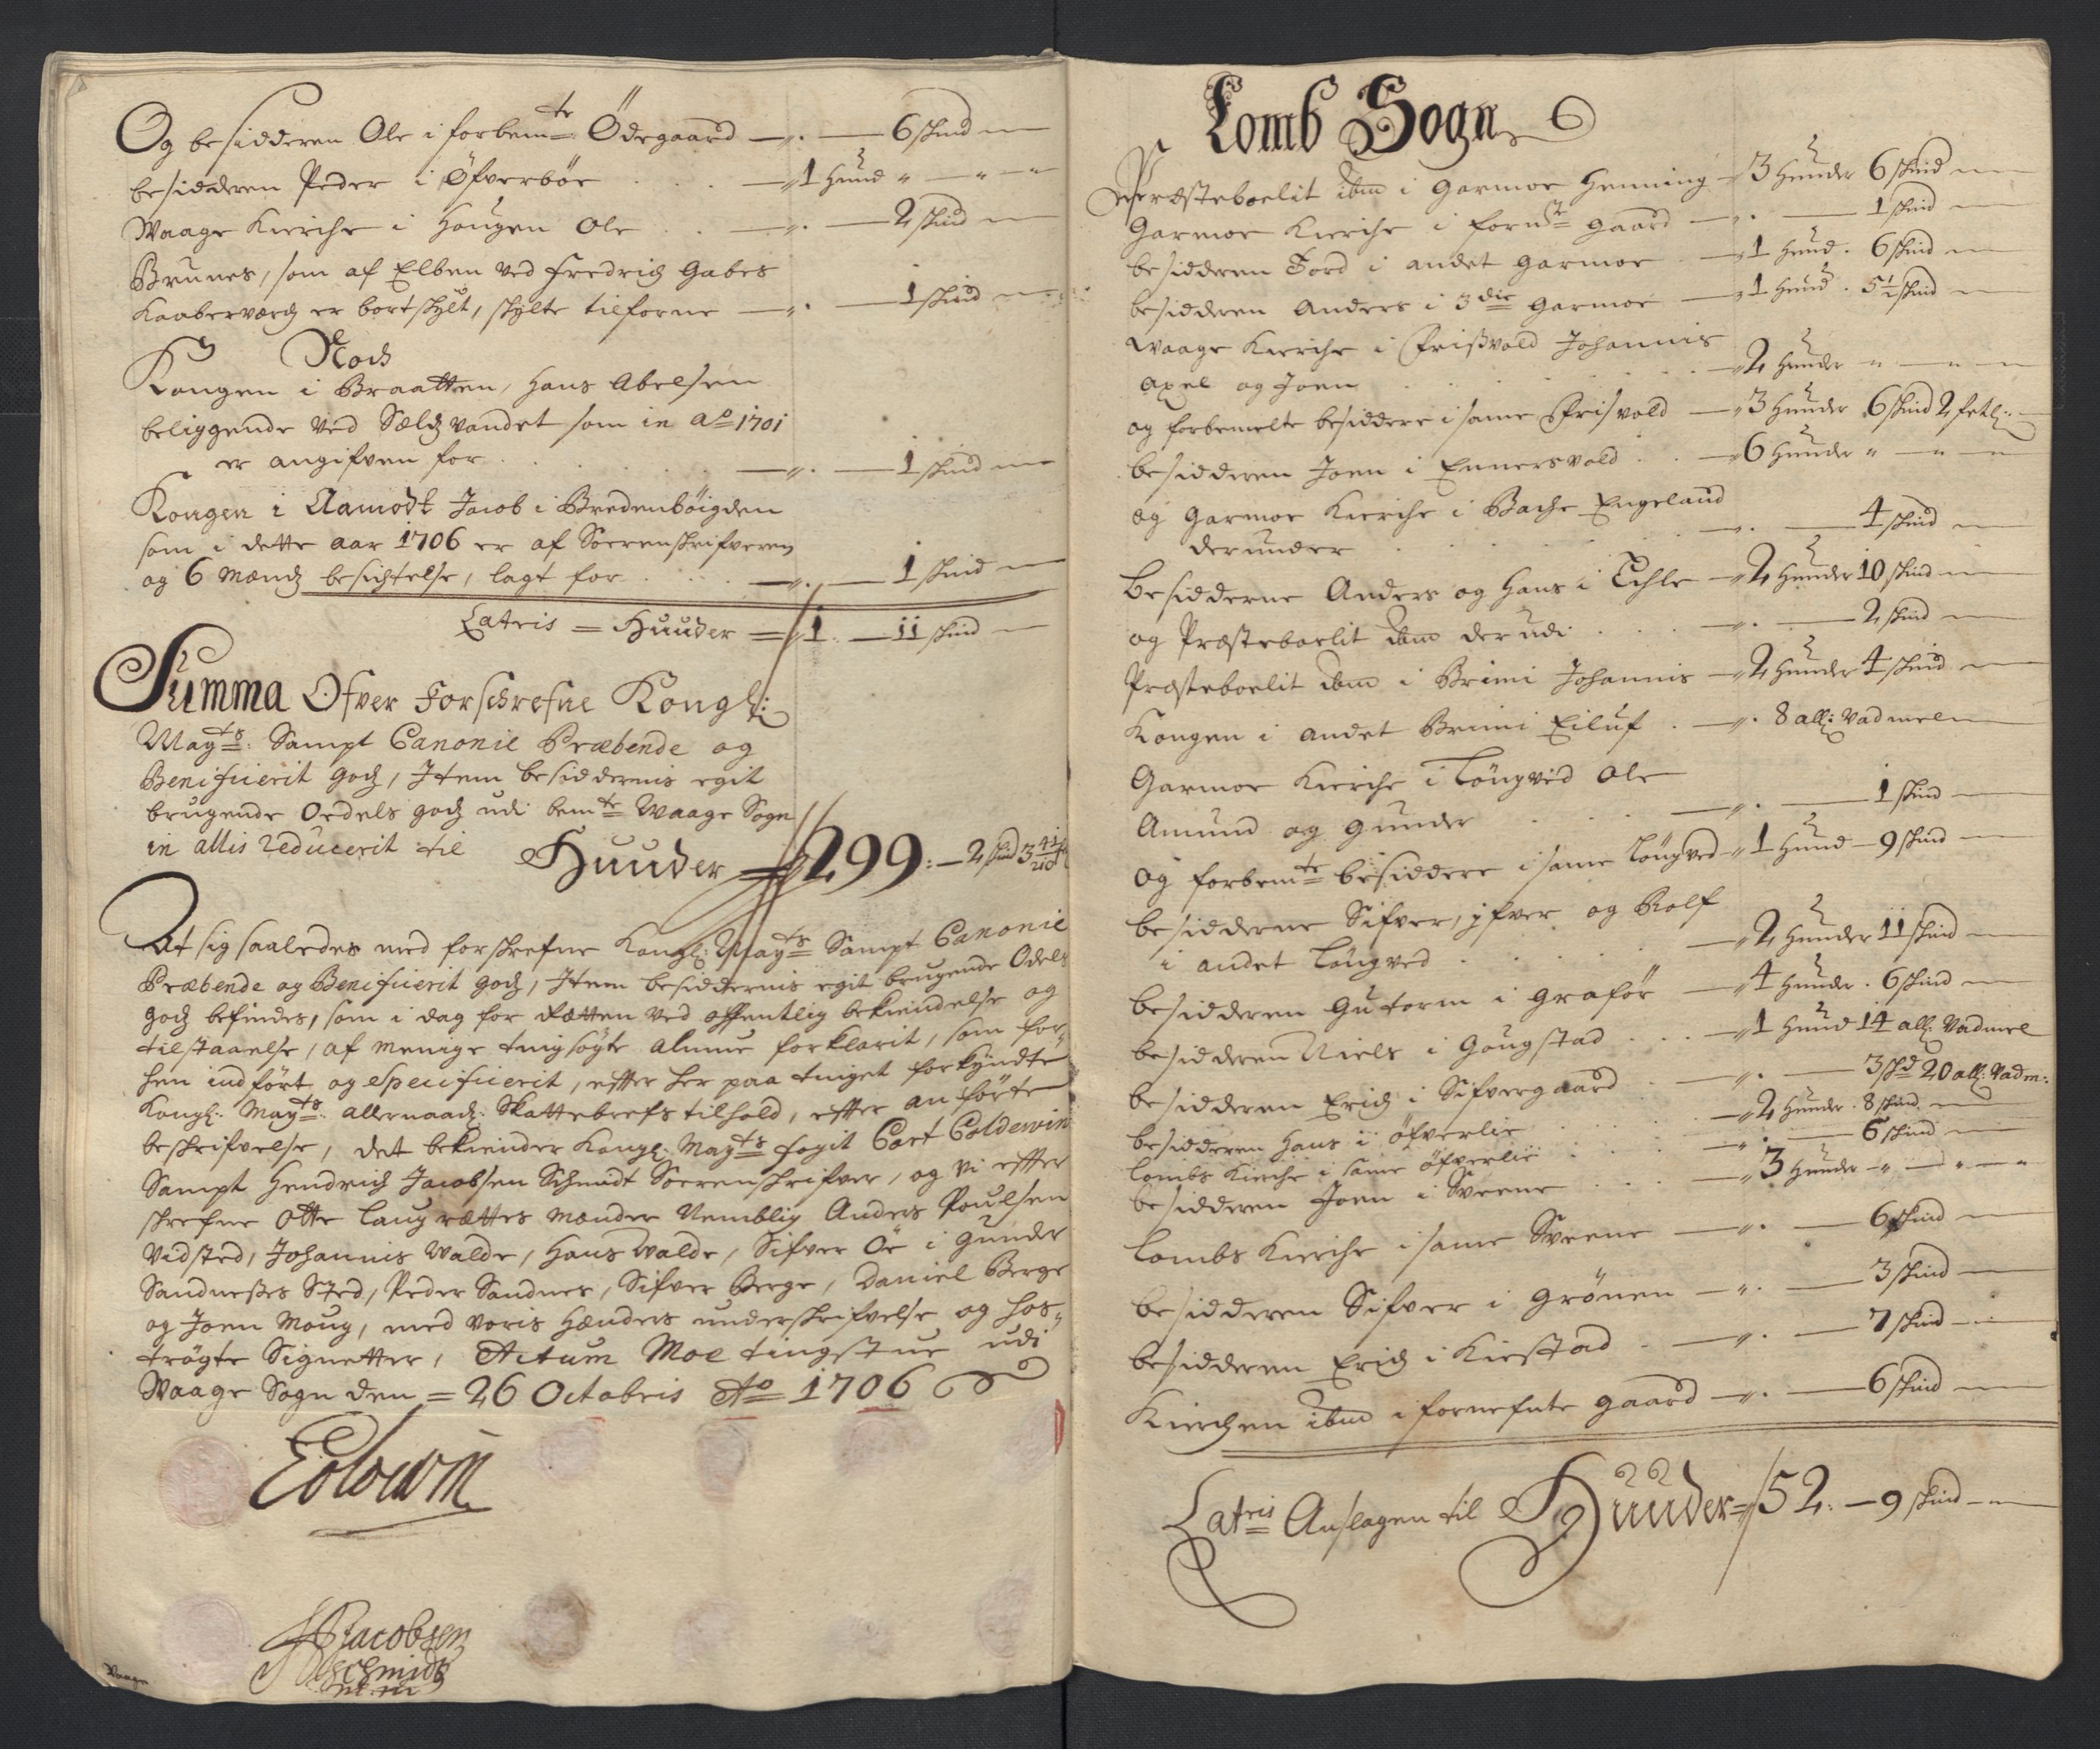 Og besidderen Ole i forbem:te Ödegaard — „. — 6 skind —
besidderen Peder i Öfverböe . . . — „1 Hund „ — „ —
Waage Kierche i Haugen Ole . . — „. — 2 skind —
Brunes, som af Elben ved Fredrich Gabes
Kaaberværch er bortskylt, skylte tilforne — „. — 1 skind —
Noch
Kongen i Braatten, Hans Abelsen
beliggende ved Sælch vandet som in Ao 1701
er angifven for . . . — „. — 1 skind —
Kongen i Aamodt Jacob i Bredenböigden
som i dette aar 1706 er af Soerenskrifveren
og 6 Mænds besichtelse, lagt for . . . — „. — 1 skind —
Latris = Huuder = „1. — 11 skind —
Summa Ofver Forschrefne Kongl:
May:ts Sampt Canonie Præbende og
Benificierit gods, Item besiddernis egit
brugende Oedels gods udi bem:te Waage Sogn
in allis reducerit til Huuder = 299: — 2 skind 3
At sig saaledes med forskrefne Kongl: May:ts Sampt Canonie
Præbende og Benificierit gods, Item besiddernis egit brugende Odels
gods befindes, som i dag for Rætten ved offentlig bekiendelse og
tilstaaelse, af Menige tingsögte Almue forklarit, som for-
hen indfört og Specificerit, efter her paa tinget forkyndte
Kongl: May:ts allernaad: Skattebrefs tilhold, efter anförte
beskrifvelse, det bekiender Kongl: May:ts fogit Cort Coldewin
Sampt Hendrich Jacobsen Schmidt Soerenskrifver, og vi efter
skrefne Otte laugrættes Mænder Nemblig Anders Poulsen
Vidsted, Johannis Walde, Hans Walde, Sifver Öe i gunder
Sandnesses Sted, Peder Sandnes, Sifver Berge, Daniel Berge
og Joen Moug, med voris Hænders underskrifvelse og hos-
trögte Signetter, Actum Moe tingstue udi
Waage Sogn den = 26 Octobris Ao 1706
Coldewin
HJacobsen
Schmidt
Waage
Lomb Sogn
Præsteboelit ibm i Garmoe Henning — 3 Hunder 6 skind —
Garmoe Kierche i forn:te gaard — „. — 1 skind —
besidderen Tord i andet Garmoe — „1 Hund. 6 skind —
besidderen Anders i 3die Garmoe — „1 Hund. 5½ skind —
Waage Kierche i Frisvold Johannis
Axel og Joen . . . — „2 Hunder „ — „ —
og forbemelte besiddere i same Frisvold — „3 Hunder 6 skind 2 fetl: —
besidderen Joen i Ennersvold . . — „6 Hunder „ — „ —
og Garmoe Kierche i Bache Engeland
derunder . . . — „. — 4 skind —
besidderne Anders og Hans i Tehle — „2 Hunder 10 skind —
og Præsteboelit ibm derudi . . . — „. — 2 skind —
Præsteboelit ibm i Brimi Johannis — „2 Hunder 4 skind —
Kongen i andet Brimi Eiluf . — „. 8 all: Vadmel —
Garmoe Kierche i Löngved Ole
Amund og Gunder . . . — „. — 1 skind —
og forbem:te besiddere i same Löngved — „1 Hund — 9 skind —
besidderne Sifver, Jfver og Rolf
i andet Löngved . . . — „2 Hunder 11 skind —
besidderen Gutorm i Graför — „4 Hunder. 6 skind —
besidderen Niels i Gougstad . . . — „1 Hund 14 all: Vadmel
besidderen Erich i Sifvergaard — „. — 3 skd 20 all: Vadm:
besidderen Hans i Öfverlie . . . — „2 Hunder. 8 skind —
Lombs Kierche i same Öfverlie . . . — „. — 6 skind —
besidderen Joen i Sveene . . . — „3 Hunder „ — „ —
Lombs Kierche i same Sveene — „. — 6 skind —
besidderen Sifver i Grönen — „. — 3 skind —
besidderen Erich i Kiestad . — „. — 7 skind —
Kierchen ibm i fornefnte gaard — „. — 6 skind —
Latris Anslagen til Huuder = 52: — 9 skind —